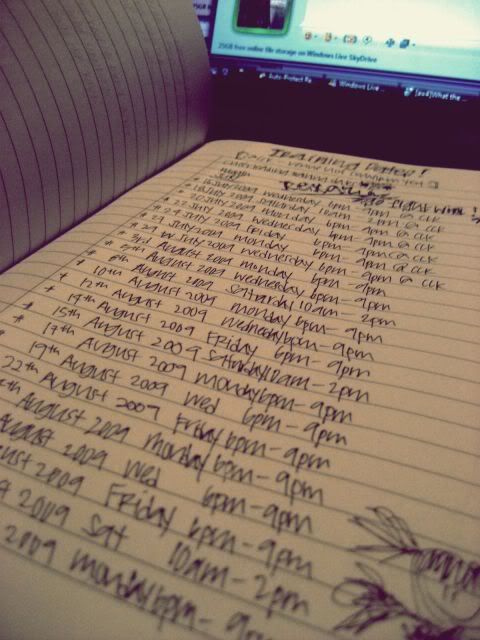 25GB free online file storage on Windows Live SkyDrive
Auto-Protect Re... Windows Live ... What the ...
Training Dates!
July 2009 wednesday 6pm - 9pm @ cck
18 July 2009 Saturday 10am - 2pm @ cck
20 July 2009 monday 6pm - 9pm @ cck
22 July 2009 wednesday 6pm - 9pm @ cck
24 July 2009 Friday 6pm - 9pm @ cck
27 July 2009 monday 6pm - 9pm @ cck
29 July 2009 wednesday 6pm - 9pm @ cck
* 3rd August 2009 monday 6pm - 9pm
* 5th August 2009 wednesday 6pm - 9pm
* 8th August 2009 Saturday 10am - 2pm
* 10th August 2009 monday 6pm - 9pm
* 12th August 2009 wednesday 6pm - 9pm
* 14th August 2009 Friday 6pm - 9pm
* 15th August 2009 Saturday 10am - 2pm
* 17th August 2009 monday 6pm - 9pm
19th August 2009 wed 6pm - 9pm
August 2009 Friday 6pm - 9pm
August 2009 monday 6pm - 9pm
August 2009 wed 6pm - 9pm
2009 Friday 6pm - 9pm
2009 sat 10am - 2pm
2009 monday 6pm -